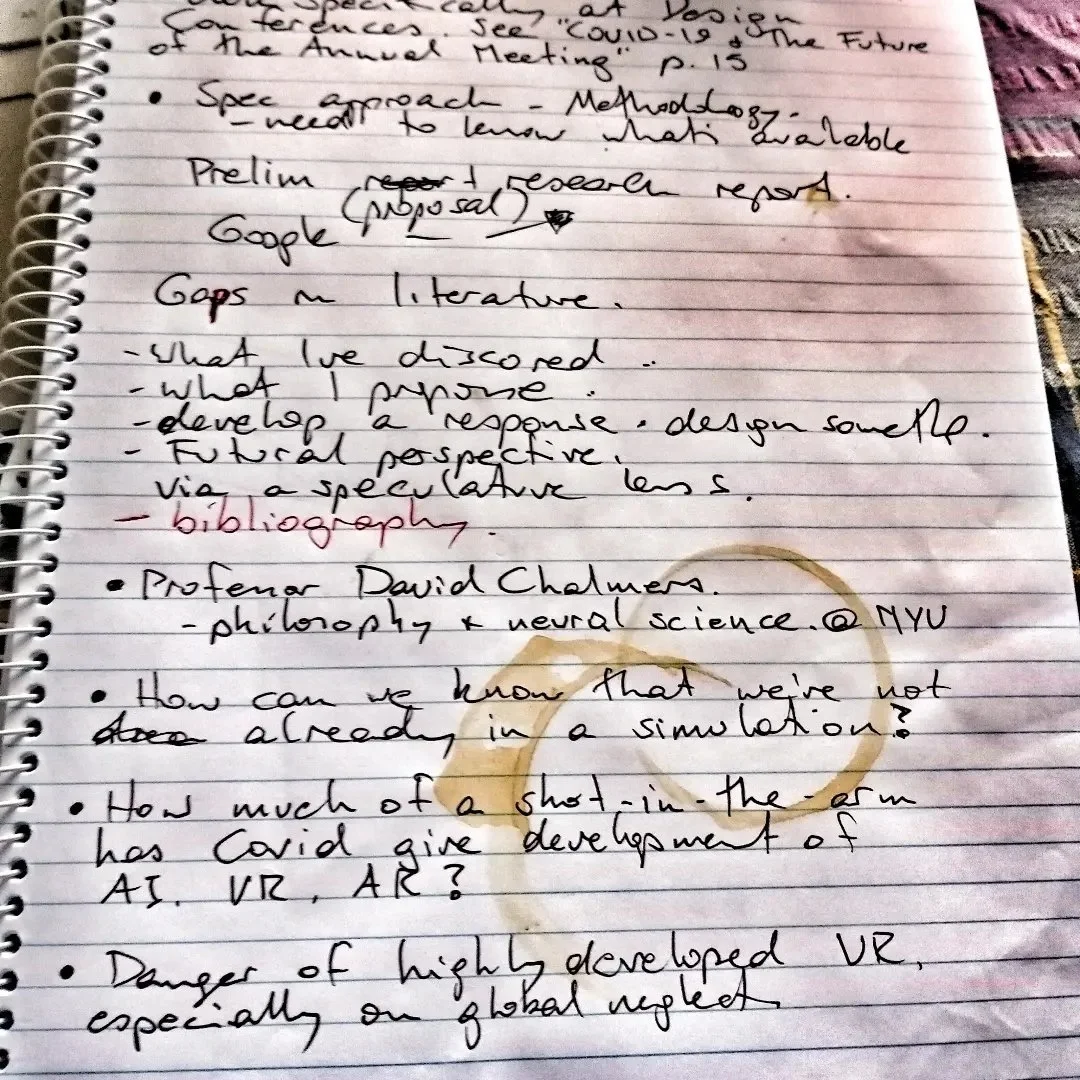 specifically at Design
Conferences. See "COVID-19 & The Future
of the Annual Meeting" p. 15
• Spec approach - Methodology.
- need to know what's available
Prelim report research report.
(proposal)
Google
Gaps in literature.
- what I've discored
- what I propose.
- develop a response. design
- Futural perspective.
via a speculative lens.
- bibliography.
• Professor David Chalmers.
- philosophy & neural science. @ NYU
• How can we know that we're not
already in a simulation?
• How much of a shot-in-the-arm
has Covid give development of
AI. VR, AR?
• Danger of highly developed VR,
especially on global neglect